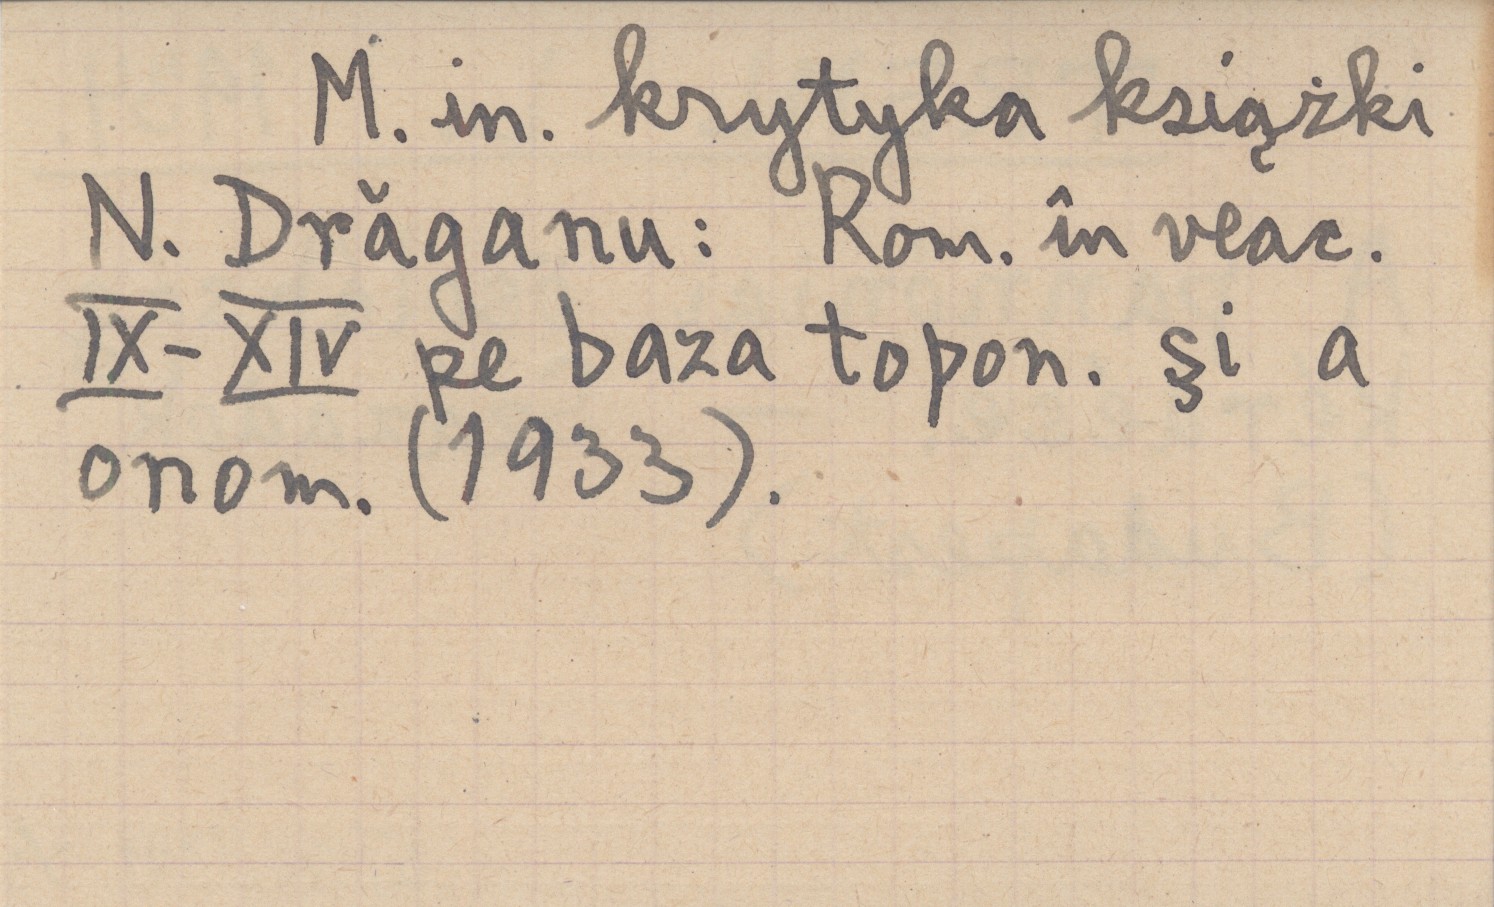 M. in. krytyka książki
N. Drăganu: Rom. în veac.
IX-XIV pe baza topon. şi a
onom. (1933).